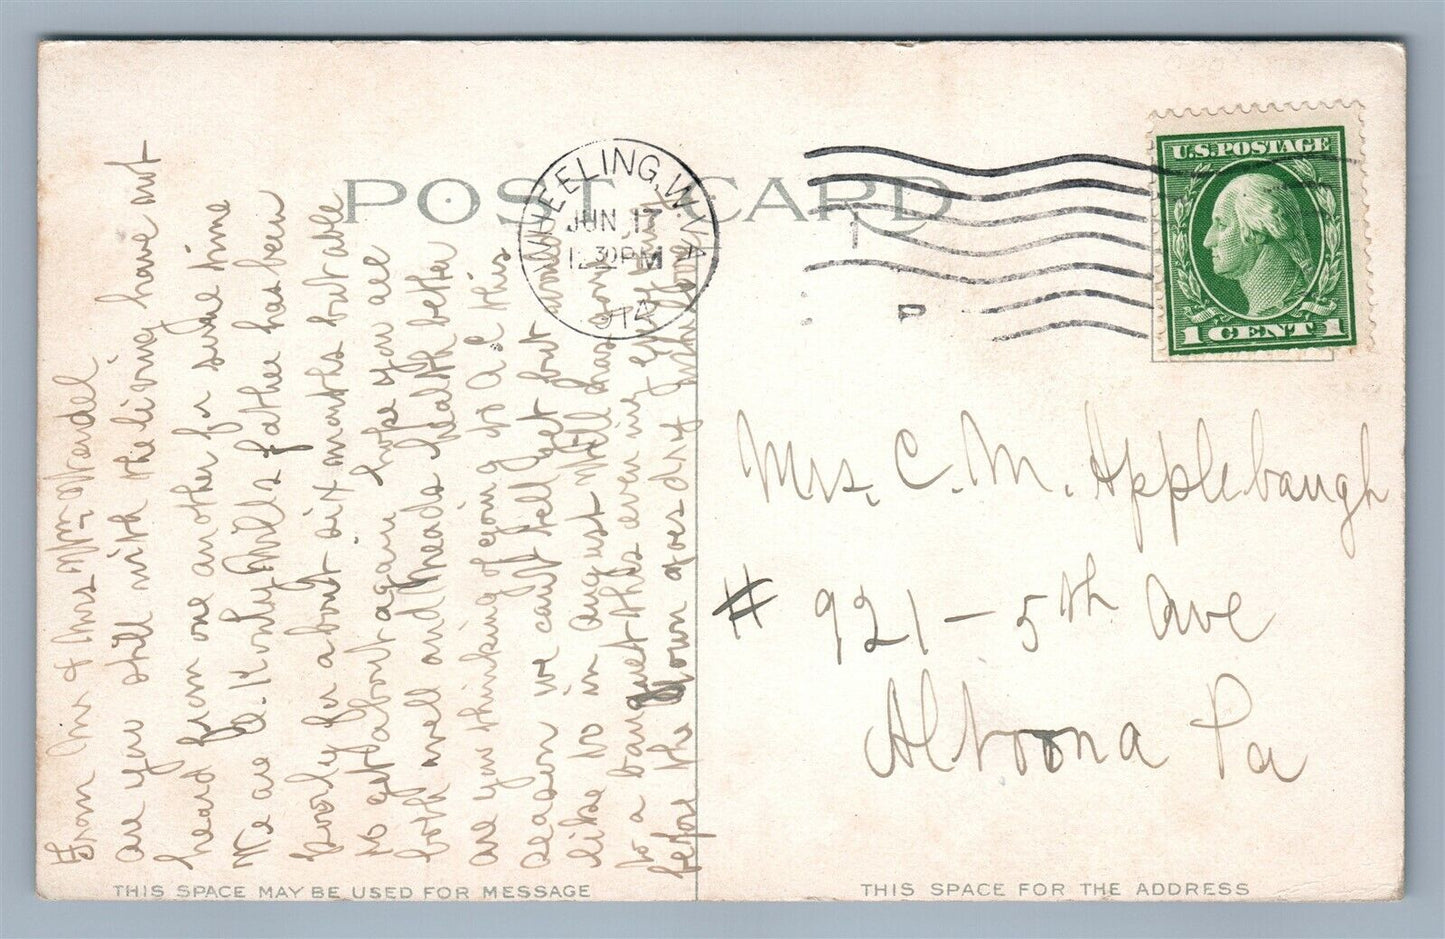 POST CARD
WHEELING, W. VA
JUN 17
12 30 PM
1914
U.S. POSTAGE
1 CENT 1
From Mr & Mrs Wm
are you still with the living have not
heard from one another for some time
We are O.K only Wills father has been
poorly for about six months but able
to get about again hope you are
both well and Freads health better
are you thinking of going to A.C this
season we cant tell yet but would
like to in august Will has gone
to a banquet this evening
before the town goes dry
Mrs. C. M. Applebaugh
# 921 - 5th Ave
Altoona Pa
THIS SPACE MAY BE USED FOR MESSAGE
THIS SPACE FOR THE ADDRESS